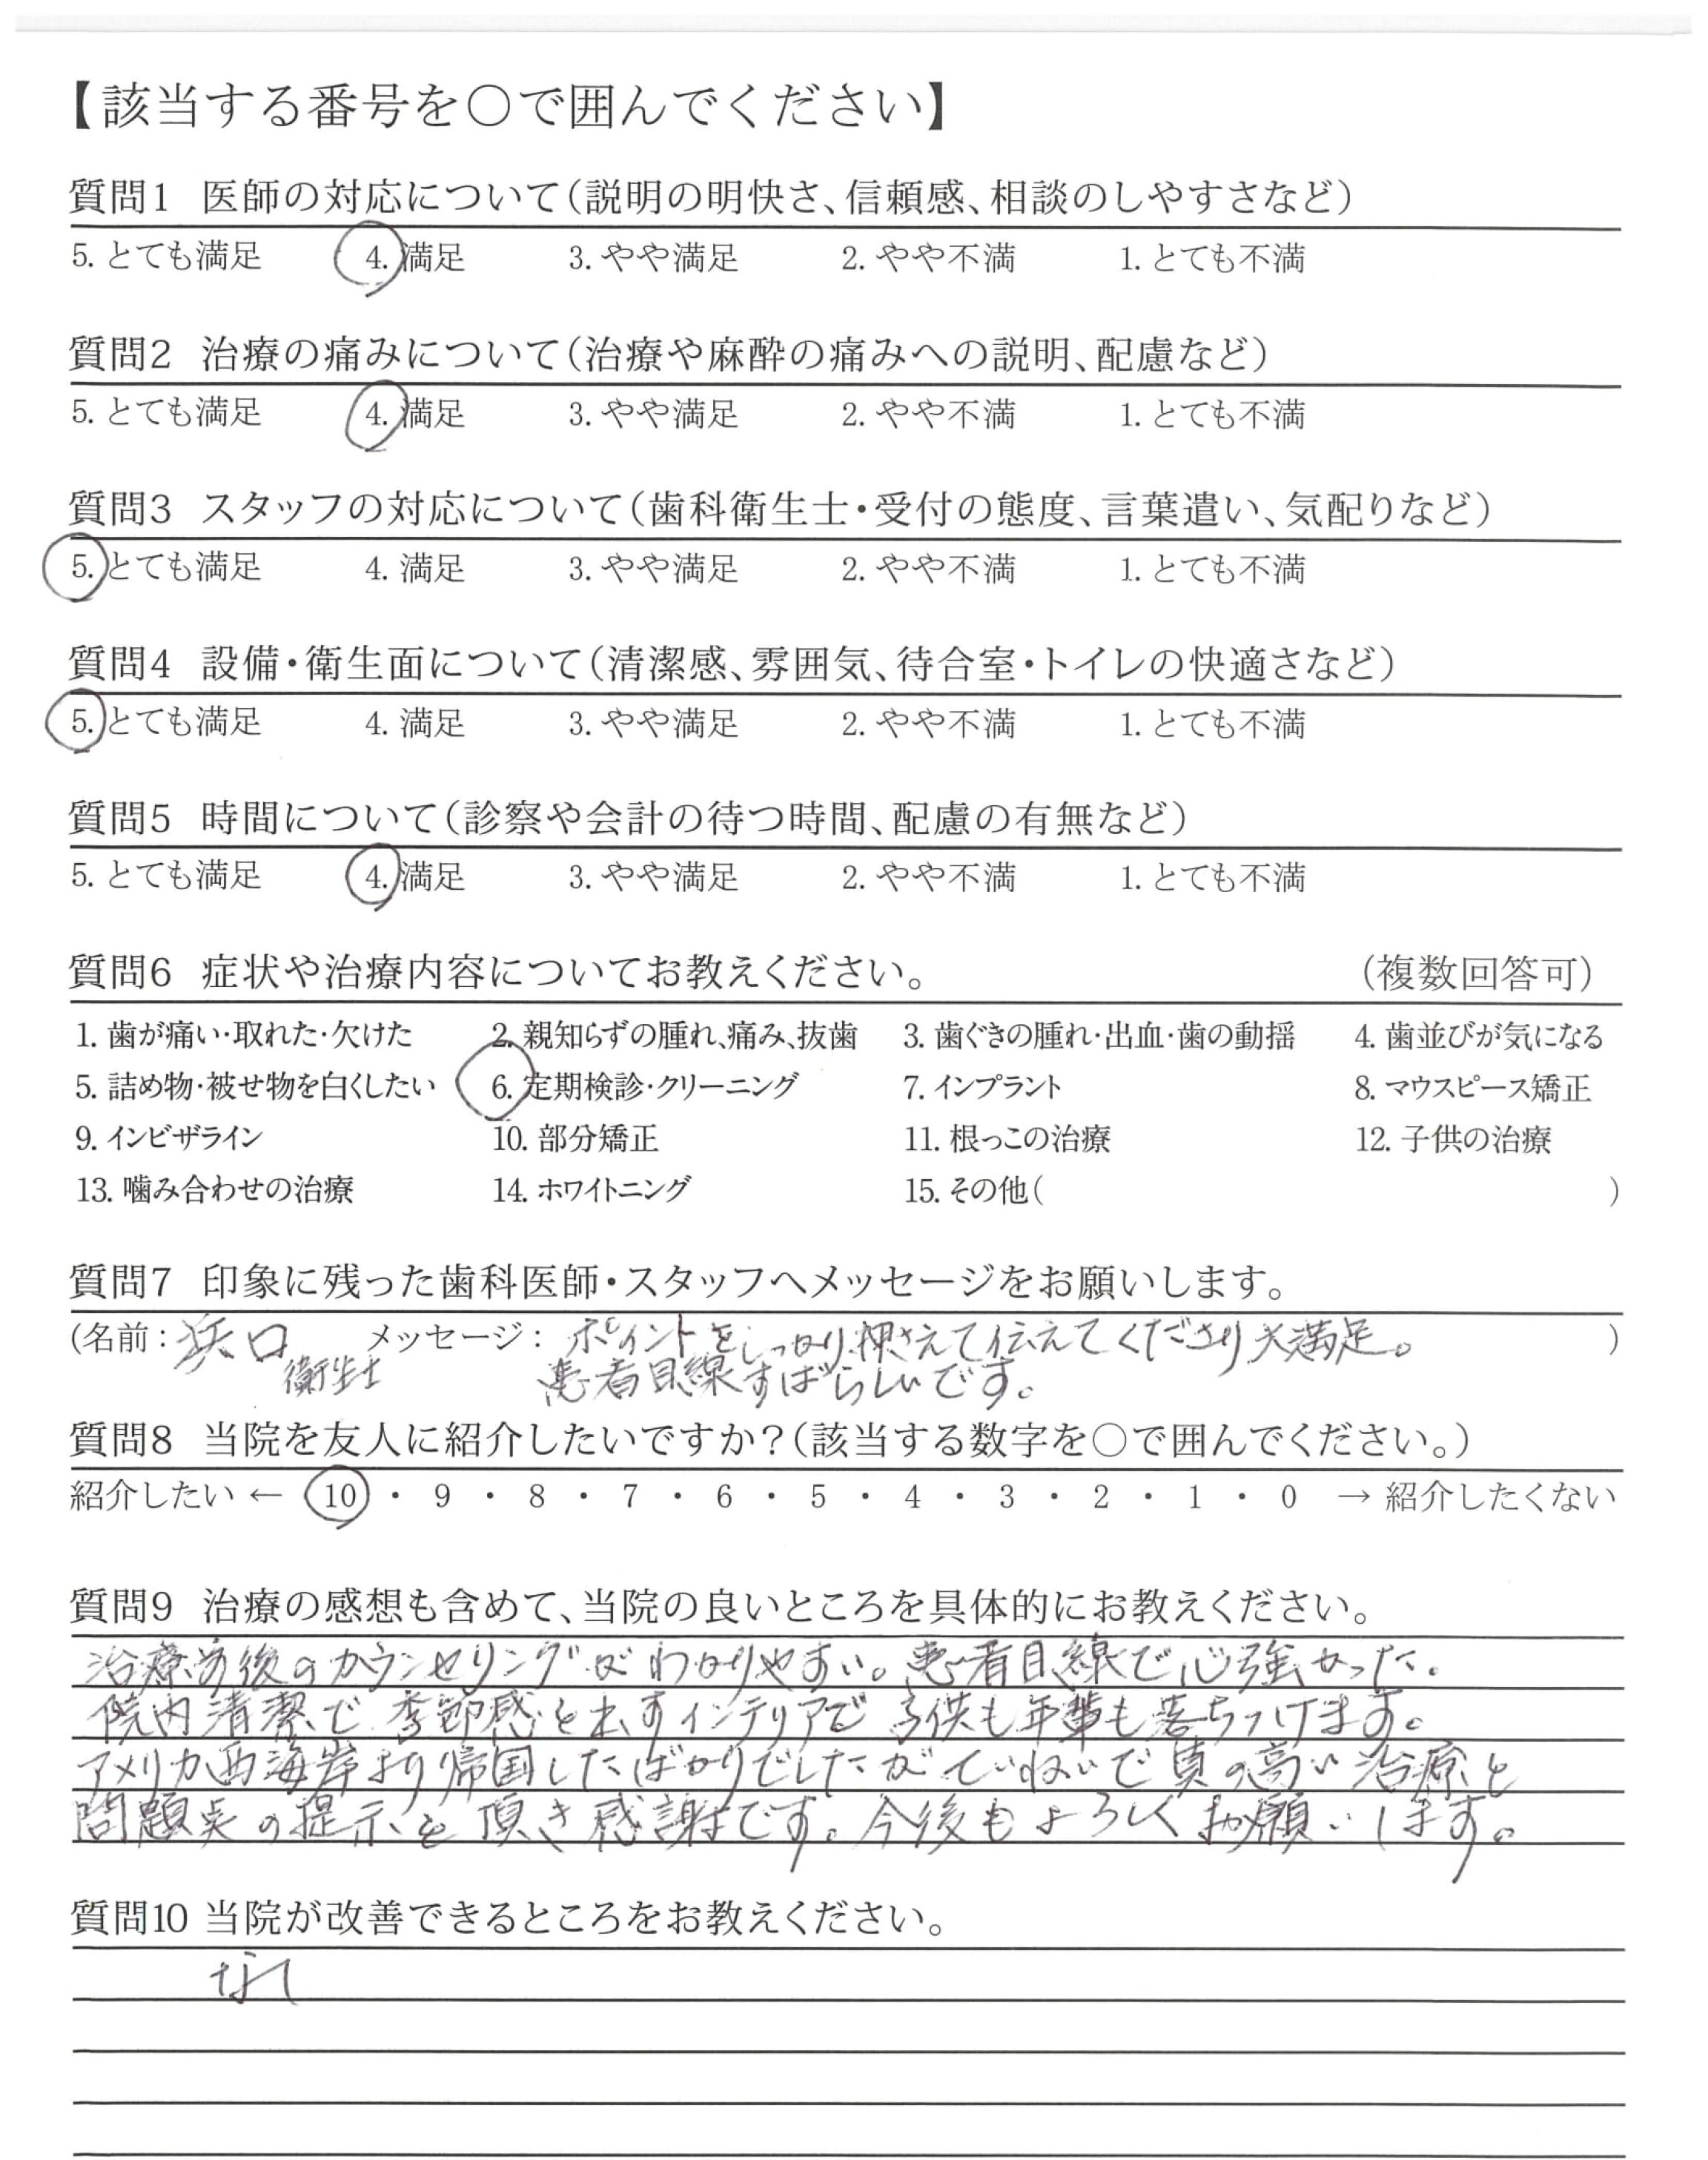 【該当する番号を○で囲んでください】
質問1 医師の対応について（説明の明快さ、信頼感、相談のしやすさなど）
5. とても満足 4. 満足 3. やや満足 2. やや不満 1. とても不満
質問2 治療の痛みについて（治療や麻酔の痛みへの説明、配慮など）
5. とても満足 4. 満足 3. やや満足 2. やや不満 1. とても不満
質問3 スタッフの対応について（歯科衛生士・受付の態度、言葉遣い、気配りなど）
5. とても満足 4. 満足 3. やや満足 2. やや不満 1. とても不満
質問4 設備・衛生面について（清潔感、雰囲気、待合室・トイレの快適さなど）
5. とても満足 4. 満足 3. やや満足 2. やや不満 1. とても不満
質問5 時間について（診察や会計の待つ時間、配慮の有無など）
5. とても満足 4. 満足 3. やや満足 2. やや不満 1. とても不満
質問6 症状や治療内容についてお教えください。 （複数回答可）
1. 歯が痛い・取れた・欠けた 2. 親知らずの腫れ、痛み、抜歯 3. 歯ぐきの腫れ・出血・歯の動揺 4. 歯並びが気になる
5. 詰め物・被せ物を白くしたい 6. 定期検診・クリーニング 7. インプラント 8. マウスピース矯正
9. インビザライン 10. 部分矯正 11. 根っこの治療 12. 子供の治療
13. 噛み合わせの治療 14. ホワイトニング 15. その他（ ）
質問7 印象に残った歯科医師・スタッフへメッセージをお願いします。
（名前：浜口 メッセージ：ポイントをしっかり押さえて伝えてくださり大満足。 ）
衛生士 患者目線すばらしいです。
質問8 当院を友人に紹介したいですか？（該当する数字を○で囲んでください。）
紹介したい ← 10 ・ 9 ・ 8 ・ 7 ・ 6 ・ 5 ・ 4 ・ 3 ・ 2 ・ 1 ・ 0 → 紹介したくない
質問9 治療の感想も含めて、当院の良いところを具体的にお教えください。
治療前後のカウンセリングがわかりやすい。患者目線で心強かった。
院内清潔で季節感を出すインテリアで子供も年輩も落ちつけます。
アメリカ西海岸より帰国したばかりでしたがていねいで質の高い治療と
問題点の提示を頂き感謝です。今後もよろしくお願いします。
質問10 当院が改善できるところをお教えください。
なし